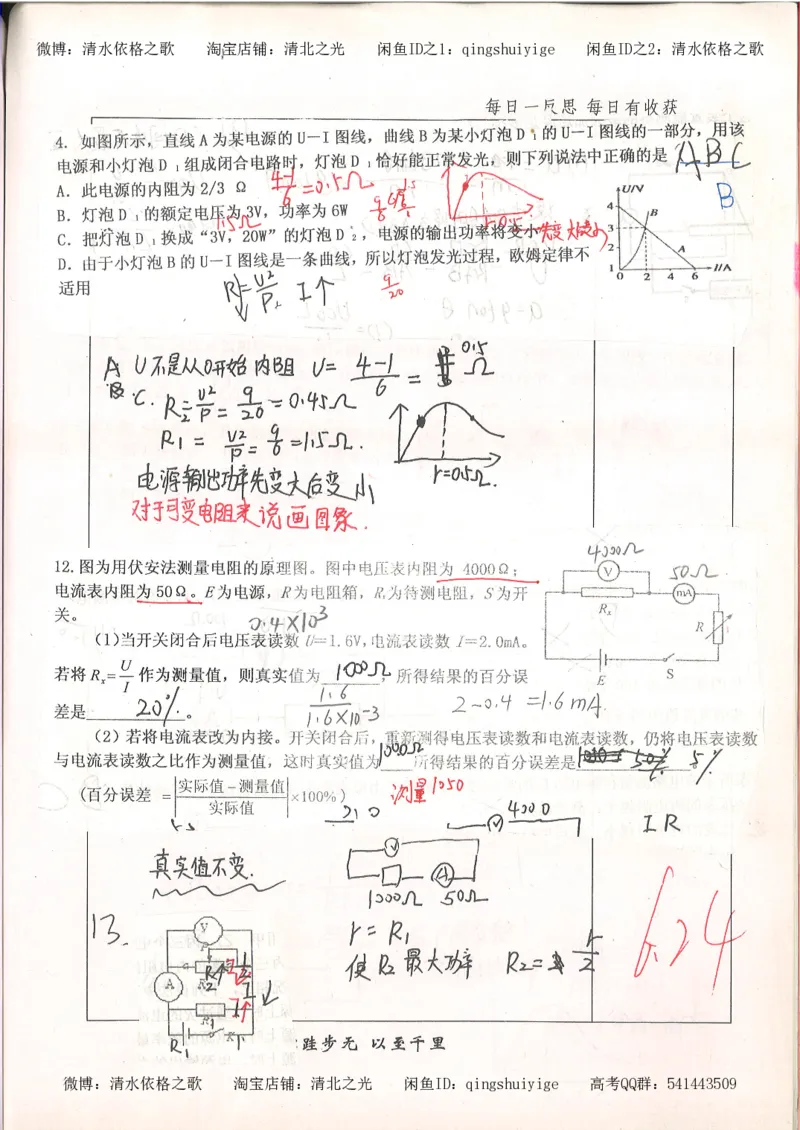 微博：清水依格之歌 淘宝店铺：清北之光 闲鱼ID之1：qingshuiyige 闲鱼ID之2：清水依格之歌
每日一反思 每日有收获
4．如图所示，直线 A 为某电源的 U－I 图线，曲线 B 为某小灯泡 D 1 的 U－I 图线的一部分，用该
电源和小灯泡 D 1 组成闭合电路时，灯泡 D 1 恰好能正常发光，则下列说法中正确的是 ABC
B
A．此电源的内阻为 2/3 Ω 4-1/6=0.5Ω
B．灯泡 D 1 的额定电压为 3V，功率为 6W
1.5Ω
C．把灯泡 D 1 换成“3V，20W”的灯泡 D 2 ，电源的输出功率将变小 先变大后变小
D．由于小灯泡 B 的 U－I 图线是一条曲线，所以灯泡发光过程，欧姆定律不
适用
R=U²/P I↑
9/20
U/V
4
3
2
1
0 2 4 6 I/A
B
A
A U不是从0开始 内阻 U= 4-1/6 = 0.5 Ω
B C. R2=U²/P=9/20=0.45Ω
R1=U²/P=9/6=1.5Ω.
r=0.5Ω.
电源输出功率先变大后变小
对于可变电阻来说画图象.
12.图为用伏安法测量电阻的原理图。图中电压表内阻为 4000Ω；
电流表内阻为 50Ω。E 为电源，R 为电阻箱，Rx为待测电阻，S 为开
关。
0.4×10³
4000Ω
V
50Ω
mA
Rx
R
E
S
(1)当开关闭合后电压表读数 U＝1.6V,电流表读数 I＝2.0mA。
若将 Rx=U/I 作为测量值，则真实值为 1000Ω ，所得结果的百分误
差是 20% 。
1.6/1.6×10-3
2-0.4 =1.6mA.
(2) 若将电流表改为内接。开关闭合后，重新测得电压表读数和电流表读数，仍将电压表读数
与电流表读数之比作为测量值，这时真实值为 1000Ω 所得结果的百分误差是 5%
(百分误差 =|实际值－测量值/实际值|×100%)
测量1050
4000
V
IR
真实值不变.
V
A
1000Ω 50Ω
13.
r=R1
使R2最大功率 R2=r/2
V
P
A
R2
R1
K
R1
6.24
跬步无 以至千里
微博：清水依格之歌 淘宝店铺：清北之光 闲鱼ID：qingshuiyige 高考QQ群：541443509